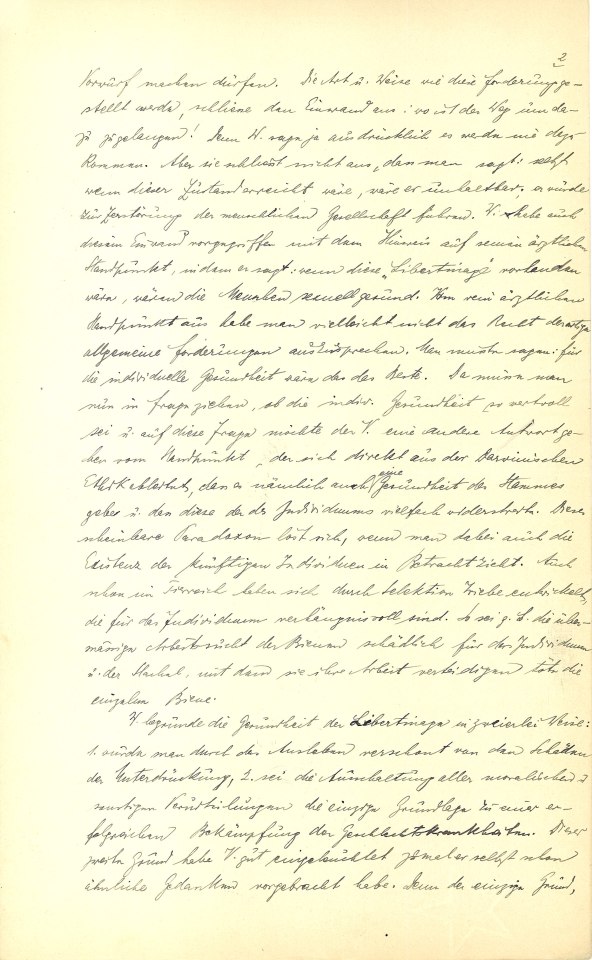 2
Vorwurf machen dürfen. Die Art u. Weise wie diese Forderung ge-
stellt werde, schliesse den Einwand aus: wo ist der Weg um da-
zu zu gelangen! Denn W. sage ja ausdrücklich es werde nie dazu
kommen. Aber sie schliesst nicht aus, dass man sagt: selbst
wenn dieser Zustand erreicht wäre, wäre er unhaltbar; er würde
zur Zerstörung der menschlichen Gesellschaft führen. W. habe auch
diesem Einwand vorgegriffen mit dem Hinweis auf seinen ärztlichen
Standpunkt, indem er sagt: wenn diese „Libertinage" vorhanden
wäre, wären die Menschen sexuell gesund. Vom rein ärztlichen
Standpunkt aus habe man vielleicht nicht das Recht derartige
allgemeine Forderungen auszusprechen. Man müsste sagen: für
die individuelle Gesundheit wäre das das Beste. Da müsse man
nun in Frage ziehen, ob die indiv. Gesundheit so wertvoll
sei u. auf diese Frage möchte der V. eine andere Antwort ge-
ben vom Standpunkt, der sich direkt aus der Darwinischen
Ethik ableitet, dass es nämlich auch eine Gesundheit des Stammes
gebe u. dass diese der des Individuums vielfach widerstrebe. Dieses
scheinbare Paradoxon löst sich, wenn man dabei auch die
Existenz der künftigen Individuen in Betracht zieht. Auch
schon im Tierreich haben sich durch Selektion Triebe entwickelt,
die für das Individuum verhängnisvoll sind. So sei z. B. die über-
mässige Arbeitssucht der Bienen schädlich für das Individuum
u. der Stachel, mit dem sie ihre Arbeit verteidigen töte die
einzelne Biene.
W. begründe die Gesundheit der Libertinage in zweierlei Weise:
1. würde man durch das Ausleben verschont von den Schäden
der Unterdrückung, 2. sei die Ausschaltung aller moralischen u
sonstigen Verurteilungen die einzige Grundlage zu einer er-
folgreichen Bekämpfung der Geschlechtskrankheiten. Dieser
zweite Grund habe V. gut eingeleuchtet zumal er selbst schon
ähnliche Gedanken vorgebracht habe. Denn der einzige Grund,